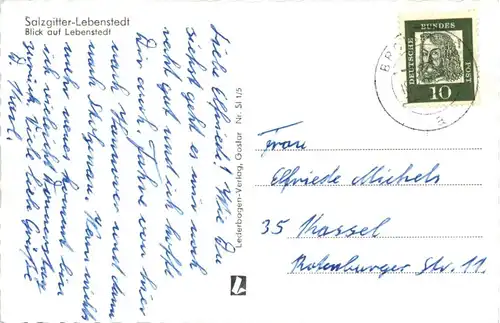 Salzgitter-Lebenstedt
Blick auf Lebenstedt
Liebe Elfriede! Wie Du
siehst geht es mir noch
recht gut und ich hoffe
Dir auch. Fahre von hier
nach Hannover und dann
nach
mehr neues kommt bin
ich vielleicht Donnerstag
zurück. Viele liebe Grüße
D. Karl.
Lederbogen-Verlag, Goslar Nr. Sl 1/5
DEUTSCHE
BUNDES
POST
10
Frau
Elfriede Michels
35 Kassel
Rotenburger Str. 11.